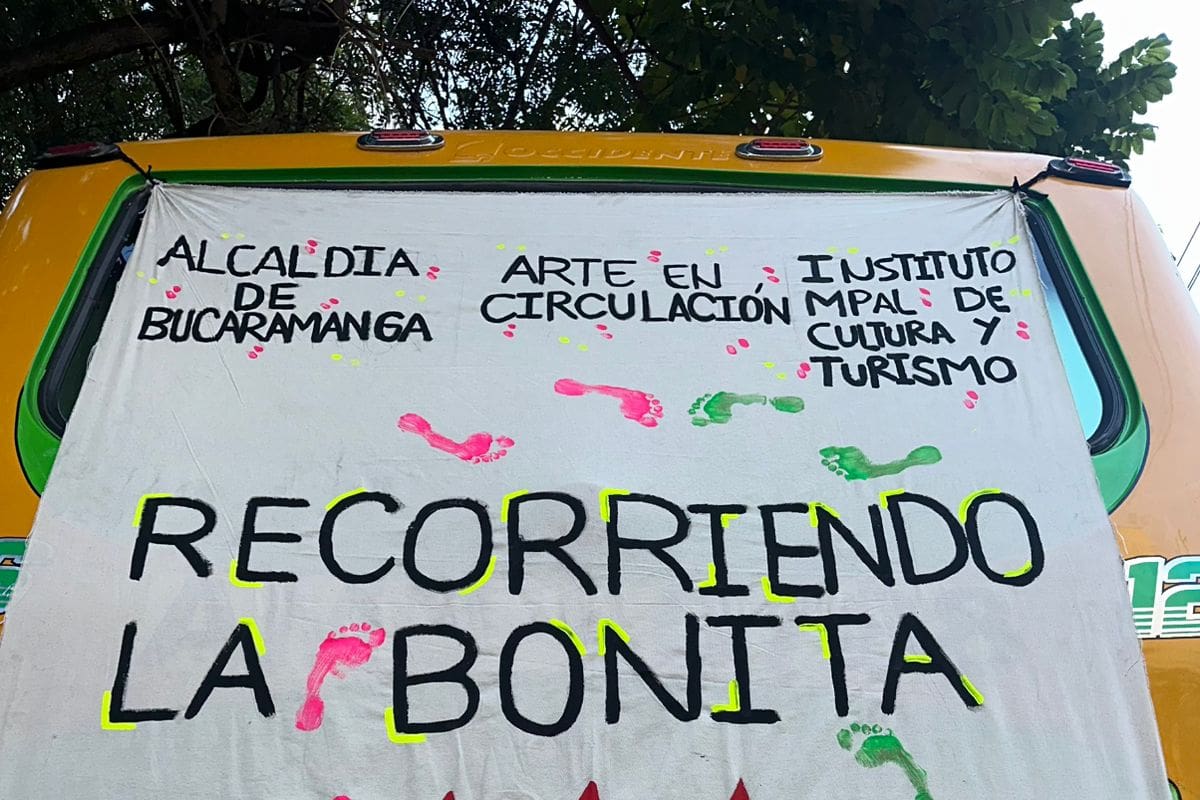 OCCIDENTE
ALCALDIA
DE
BUCARAMANGA
ARTE EN
CIRCULACIÓN
INSTITUTO
MPAL DE
CULTURA Y
TURISMO
RECORRIENDO
LA BONITA
12